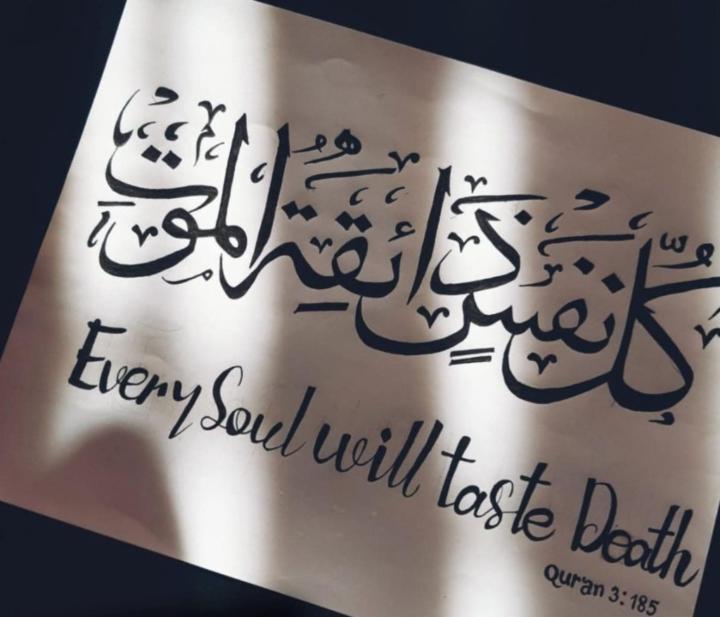 كُلُّ نَفْسٍ ذَائِقَةُ الْمَوْتِ
Every Soul will taste Death
Qur'an 3:185